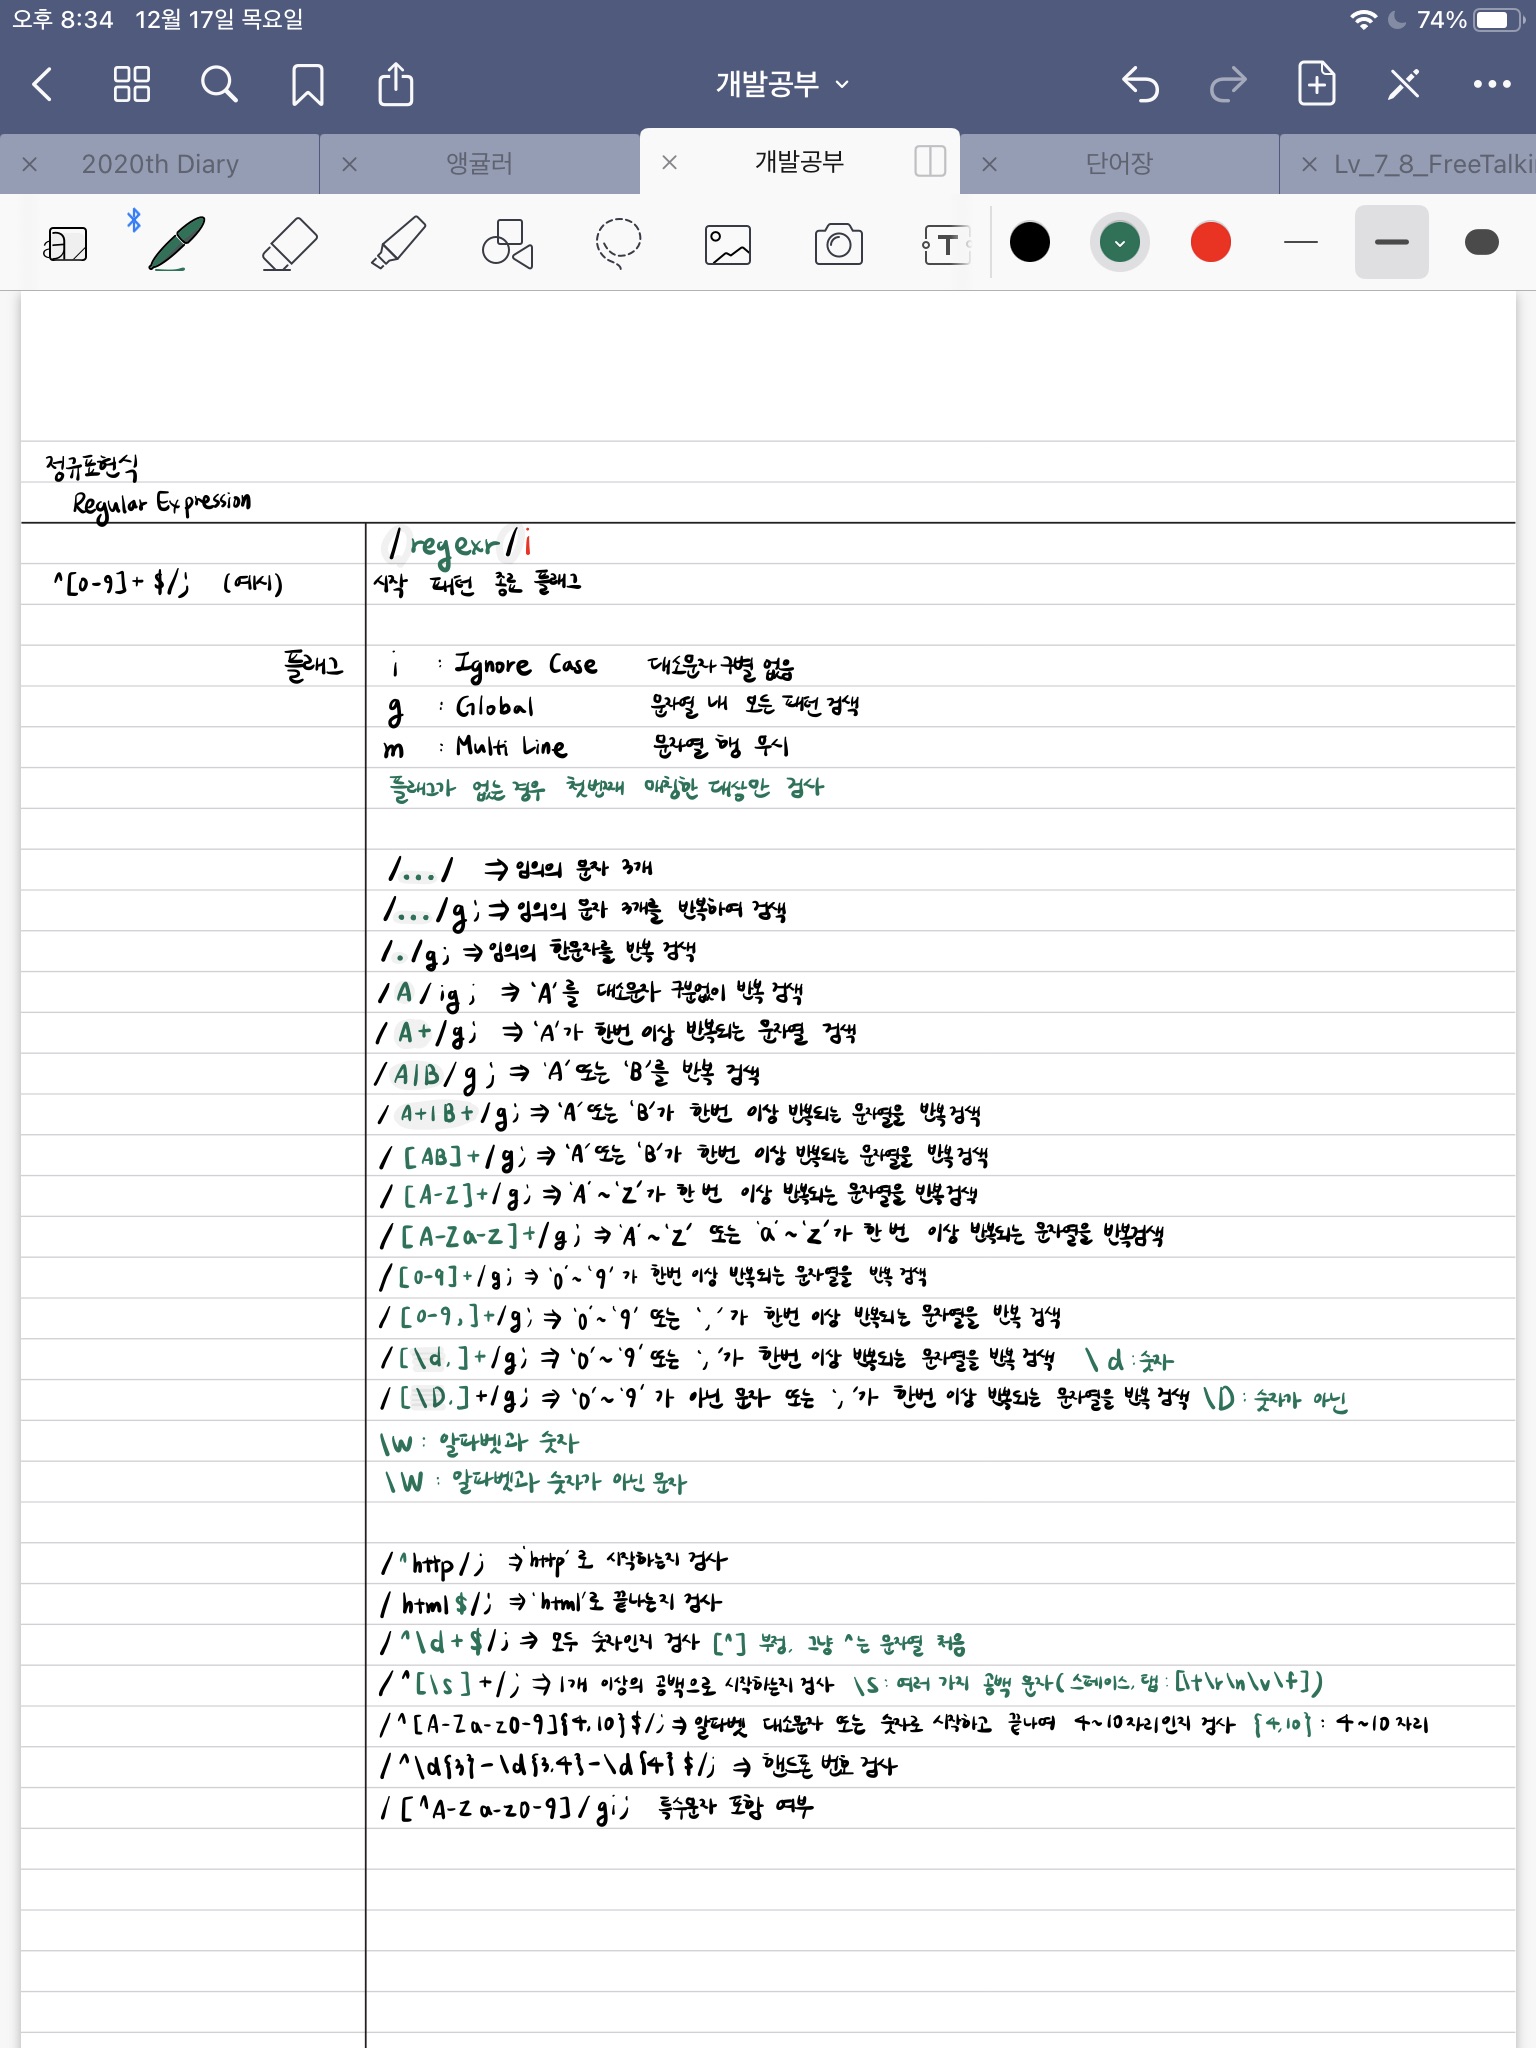 오후 8:34 12월 17일 목요일 74%
개발공부
2020th Diary 앵귤러 개발공부 단어장 Lv_7_8_FreeTalki
정규표현식
Regular Expression
/regexr/i
^[0-9]+ $/; (예시) 시작 패턴 종료 플래그
플래그 i : Ignore Case 대소문자 구별 없음
g : Global 문자열 내 모든 패턴 검색
m : Multi Line 문자열 행 무시
플래그가 없는 경우 첫번째 매칭한 대상만 검사
/.../ ⇒ 임의의 문자 3개
/.../g; ⇒ 임의의 문자 3개를 반복하여 검색
/./g; ⇒ 임의의 한문자를 반복 검색
/A/ig; ⇒ 'A'를 대소문자 구분없이 반복 검색
/A+/g; ⇒ 'A'가 한번 이상 반복되는 문자열 검색
/A|B/g; ⇒ 'A' 또는 'B'를 반복 검색
/A+|B+/g; ⇒ 'A' 또는 'B'가 한번 이상 반복되는 문자열을 반복검색
/[AB]+/g; ⇒ 'A' 또는 'B'가 한번 이상 반복되는 문자열을 반복검색
/[A-Z]+/g; ⇒ 'A' ~ 'Z'가 한번 이상 반복되는 문자열을 반복검색
/[A-Za-z]+/g; ⇒ 'A' ~ 'Z' 또는 'a' ~ 'z'가 한번 이상 반복되는 문자열을 반복검색
/[0-9]+/g; ⇒ '0' ~ '9'가 한번 이상 반복되는 문자열을 반복 검색
/[0-9,]+/g; ⇒ '0' ~ '9' 또는 ','가 한번 이상 반복되는 문자열을 반복 검색
/[\d,]+/g; ⇒ '0' ~ '9' 또는 ','가 한번 이상 반복되는 문자열을 반복 검색 \d : 숫자
/[\D,]+/g; ⇒ '0' ~ '9'가 아닌 문자 또는 ','가 한번 이상 반복되는 문자열을 반복 검색 \D : 숫자가 아닌
\w : 알파벳과 숫자
\W : 알파벳과 숫자가 아닌 문자
/^http/; ⇒ 'http'로 시작하는지 검사
/html$/; ⇒ 'html'로 끝나는지 검사
/^\d+$/; ⇒ 모두 숫자인지 검사 [^] 부정, 그냥 ^는 문자열 처음
/^[\s]+/; ⇒ 1개 이상의 공백으로 시작하는지 검사 \s : 여러 가지 공백 문자(스페이스, 탭 : [\t\r\n\v\f])
/^[A-Za-z0-9]{4,10}$/; ⇒ 알파벳 대소문자 또는 숫자로 시작하고 끝나며 4~10자리인지 검사 {4,10} : 4~10자리
/^\d{3}-\d{3,4}-\d{4}$/; ⇒ 핸드폰 번호 검사
/[^A-Za-z0-9]/gi; 특수문자 포함 여부